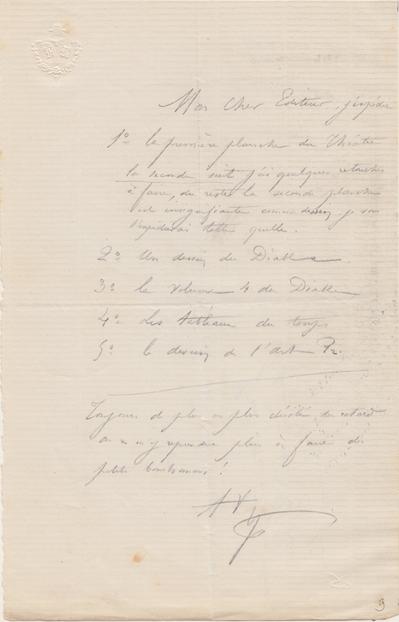 Mon cher Editeur, j'expédie
1º la première planche du Théâtre
la seconde suit j'ai quelques retouches
à faire, du reste la seconde planche
est insignifiante comme dessin je vous
l'expédierai telle quelle.
2º Un dessin du Diable
3º le volume 4 du Diable
4º Les tableaux du temps
5º le dessin de l'art
Toujours de plus en plus désolé du retard
on ne m'y reprendra plus à faire de
petits bonshommes!
3